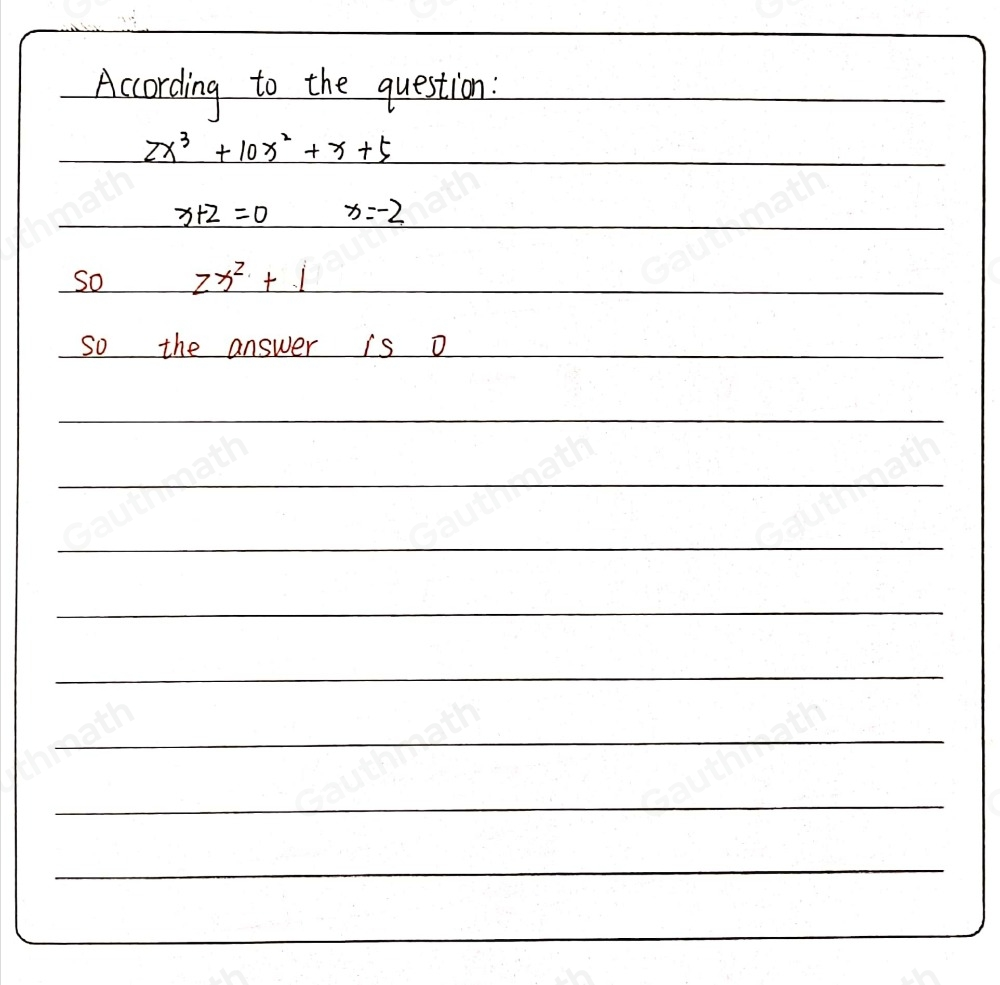 According to the question:
2x³ + 10x² + x + 5
x+2 = 0 x=-2
so 2x² + 1
so the answer is 0
Gauthmath